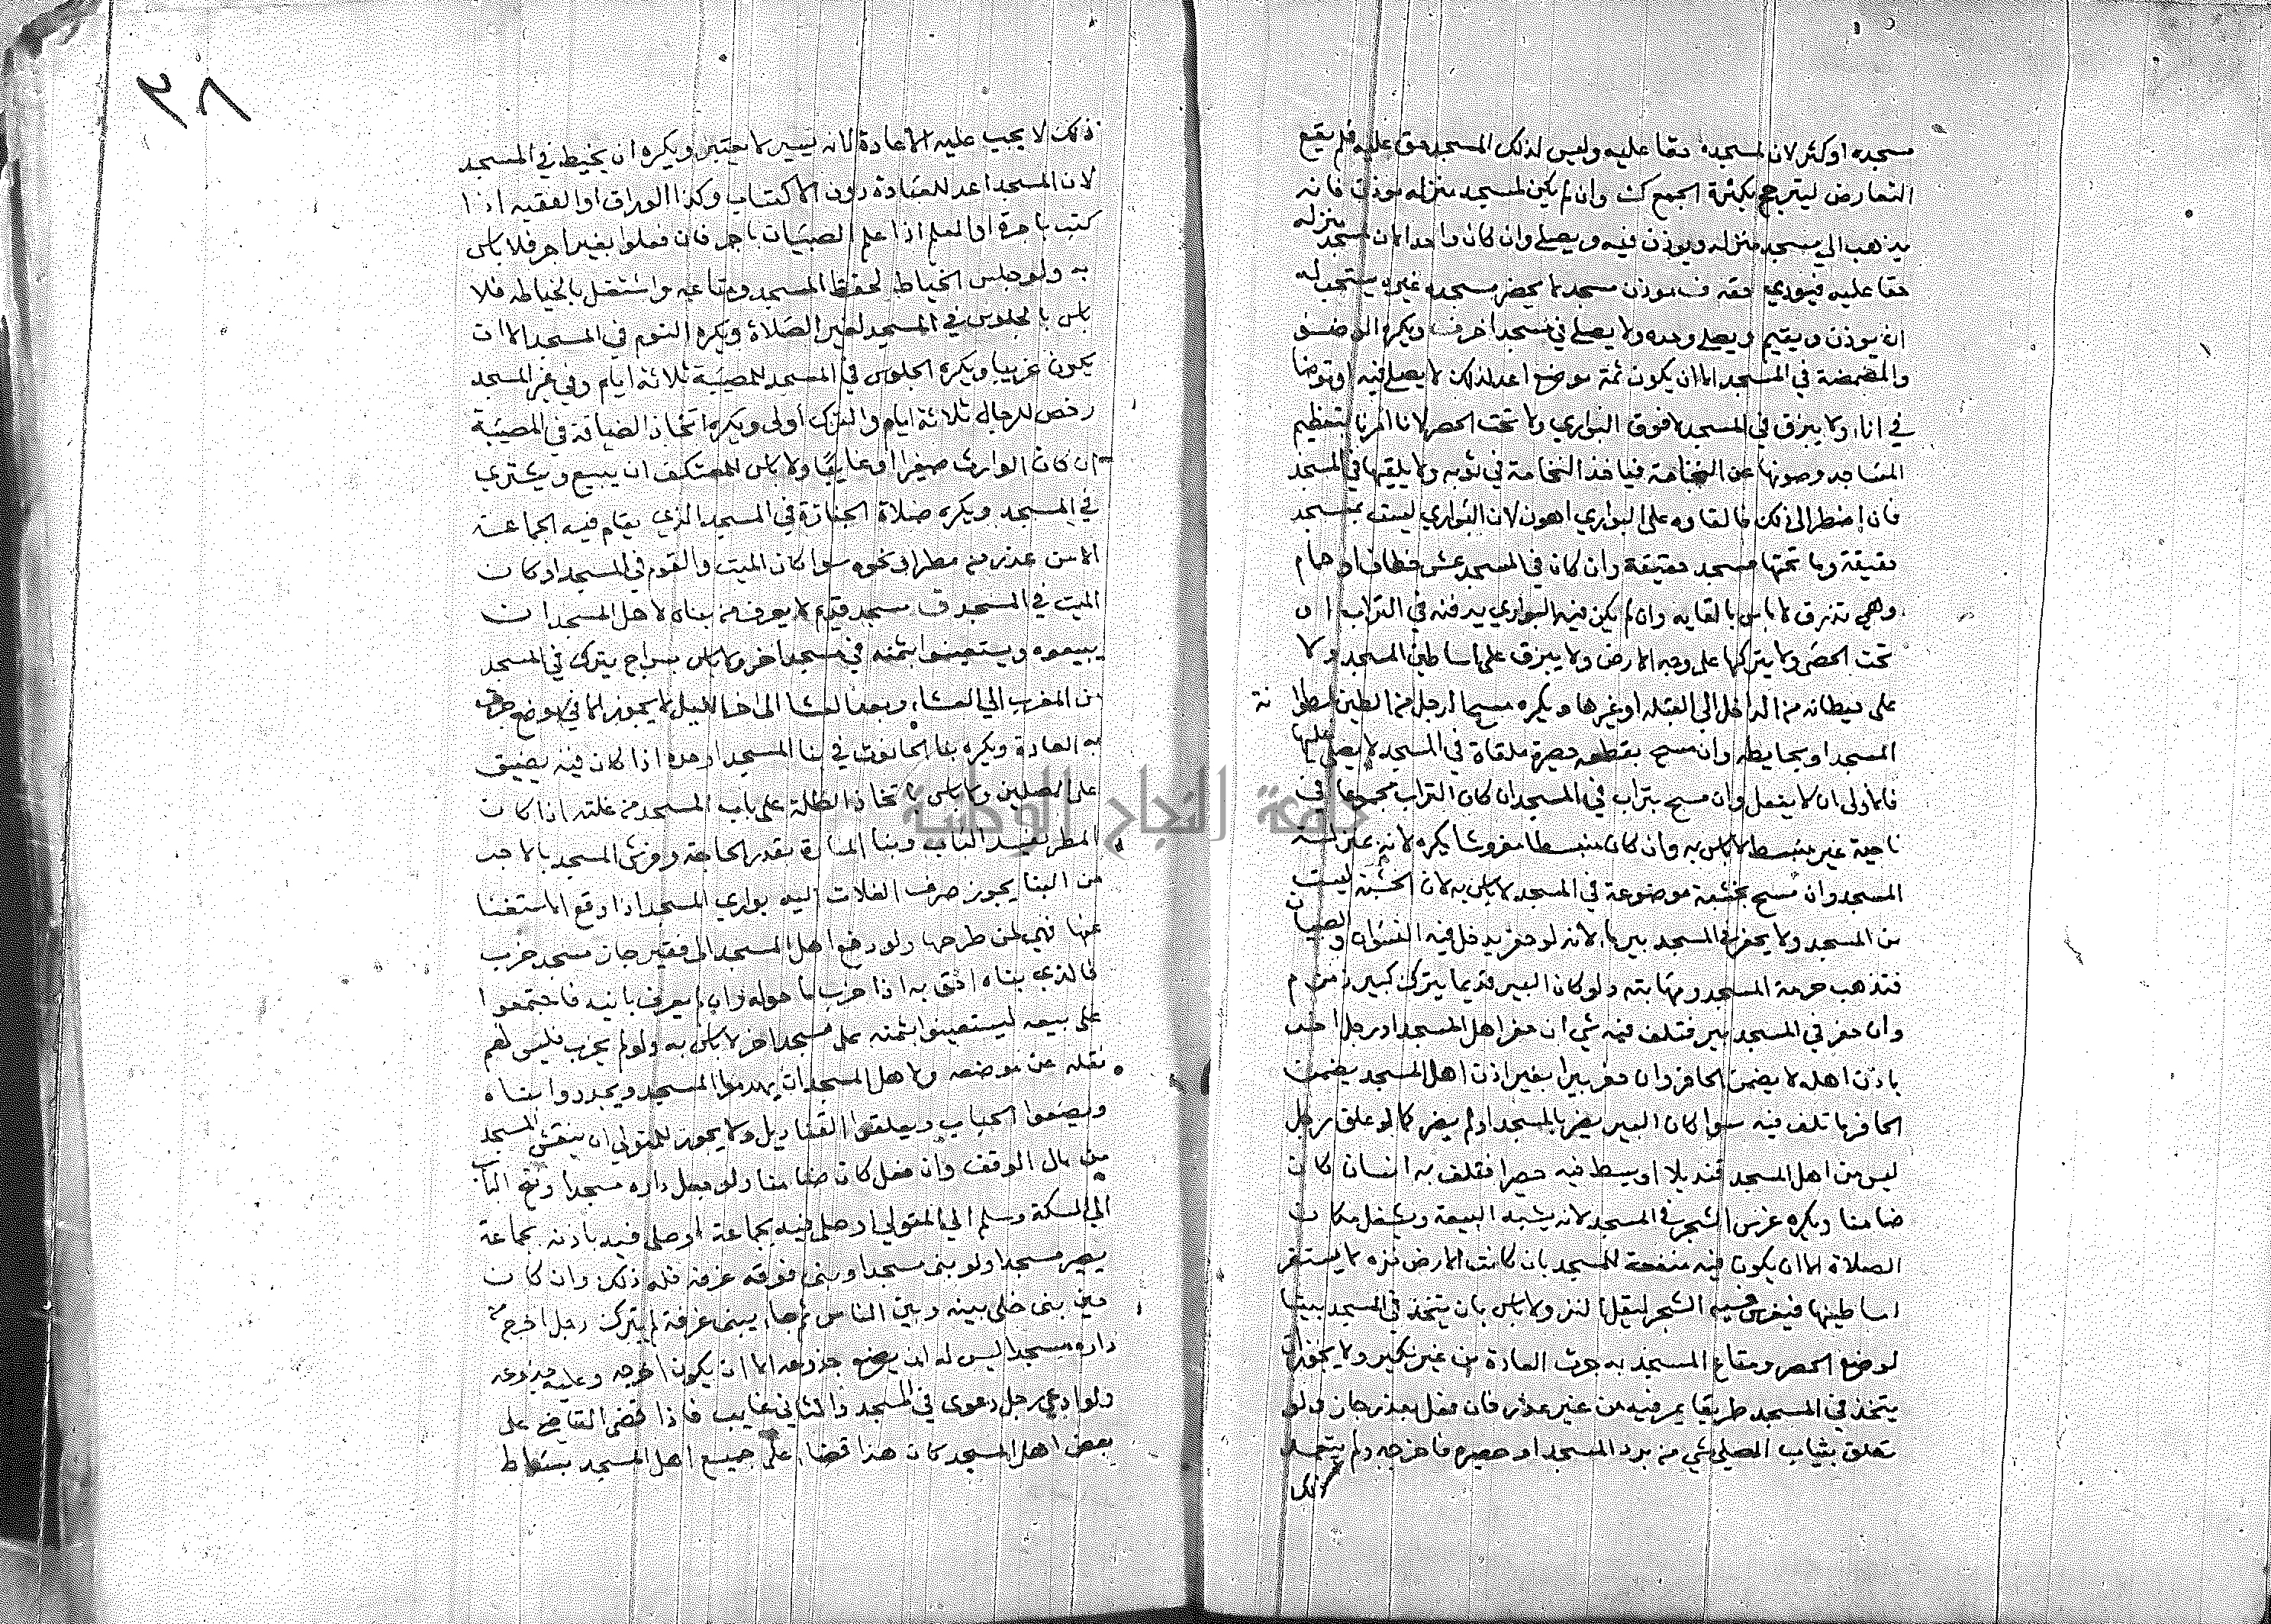 مسجده او كثر لان لمسجده حقا عليه وليس لذلك المسجد حق عليه فلم يقع
التعارض ليترجح بكثرة الجمع وان لم يكن لمسجد منزله موذن فانه
يذهب الي مسجد منزله ويوذن فيه ويصلي وان كان واحدا لان لمسجد منزله
حقا عليه فيودي حقه موذن مسجد لا يحضر مسجده غيره يستحب له
ان يوذن ويقيم ويصلي وحده ولا يصلي في مسجد اخر ويكره الوضو
والمضمضة في المسجد الا ان يكون ثمة موضع اعد لذلك لا يصلي فيه او توضا
في انا ولا يبزق في المسجد لا فوق البواري ولا تحت الحصر لانا امرنا بتعظيم
المساجد وصونها عن النخامة فياخذ النخامة في ثوبه ولا يلقيها في المسجد
فان اضطر الى ذلك فالقاوه على البواري اهون لان البواري ليست بمسجد
حقيقة وما تحتها مسجد حقيقة وان كان في المسجد عش خطاف او حمام
وهي تذرق لا باس بالقايه وان لم يكن فيه البواري يدفنه في التراب او
تحت الحصى ولا يتركها على وجه الارض ولا يبزق على اساطين المسجد ولا
على حيطانه من الداخل الي القبلة او غيرها ويكره مسح الرجل من الطين باسطوانة
المسجد او بحايطه وان مسح بقطعه حصيرة ملقاة في المسجد لا يصلي عليها
فالاولى ان لا يفعل وان مسح بتراب في المسجد ان كان التراب مجموعا في
ناحية غير منبسط لا باس به وان كان منبسطا مفروشا يكره لانه بمنزلة
المسجد وان مسح بخشبة موضوعة في المسجد لا باس به لان الخشبة ليست
من المسجد ولا يحفر في المسجد بير ما لانه لو حفر يدخل فيه النسوان والصبيان
فتذهب حرمة المسجد ومهابته ولو كان البير قديما يترك كبير زمزم
وان حفر في المسجد بير فتلف فيه شي ان حفر اهل المسجد او رجل اخر
باذن اهله لا يضمن الحافر وان حفر بيرا بغير اذن اهل المسجد يضمن
الحافر ما تلف فيه سوا كان البير يضر بالمسجد او لم يضر كما لو علق رجل
ليس من اهل المسجد قنديلا او بسط فيه حصيرا فتلف به انسان كان
ضامنا ويكره غرس الشجر في المسجد لانه يشبه البيعة ويشغل مكان
الصلاة الا ان يكون فيه منفعة للمسجد بان كانت الارض نزه لا يستقر
اساطينها فيغرس فيه الشجر ليقل النز ولا باس بان يتخذ في المسجد بيتا
لوضع الحصر ومتاع المسجد به جرت العادة من غير نكير ولا يجوز ان
يتخذ في المسجد طريقا يمر فيه من غير عذر فان فعل بعذر جاز ولو
تعلق بثياب المصلي شي من برد المسجد او حصيره فاخرجه ولم يتعمد
ذلك
٣٨
ذلك لا يجب عليه الاعادة لانه يسير لا يعتبر ويكره ان يخيط في المسجد
لان المسجد اعد للعبادة دون الاكتساب وكذا الوراق او الفقيه اذا
كتب باجرة او المعلم اذا علم الصبيان باجر فان فعلوا بغير اجر فلا باس
به ولو جلس الخياط لحفظ المسجد ومتاعه واشتغل بالخياطه فلا
باس بالجلوس في المسجد لغير الصلاة ويكره النوم في المسجد الا ان
يكون غريبا ويكره الجلوس في المسجد للمصيبة ثلاثة ايام وفي غير المسجد
رخص للرجال ثلاثة ايام والترك اولى ويكره اتخاذ الضيافة في المصيبة
ان كان الوارث صغيرا او غايبا ولا باس للمعتكف ان يبيع ويشتري
في المسجد ويكره صلاة الجنازة في المسجد الذي يقام فيه الجماعة
الا من عذر من مطر او نحوه سوا كان الميت والقوم في المسجد او كان
الميت في المسجد مسجد قديم لا يعرف من بناه لاهل المسجد ان
يبيعوه ويستعينوا بثمنه في مسجد اخر ولا باس بسراج يترك في المسجد
من المغرب الي العشا وبعد العشا الى اخر الليل لا يجوز الا في موضع جرت
به العادة ويكره بنا الحانوت في بنا المسجد او حده اذا كان فيه يضيق
على المصلين ولا باس باتخاذ الظلة على باب المسجد من غلته اذا كان
المطر يفسد الباب وبنا المنارة بقدر الحاجة وفرش المسجد بالاجر
من البنا يجوز صرف الغلات اليه بواري المسجد اذا وقع الاستغنا
عنها فهي لمن طرحها ولو دفع اهل المسجد الى فقير جاز مسجد خرب
فالذي بناه احق به اذا خرب ما حوله وان لم يعرف بانيه فاجتمعوا
على بيعه ليستعينوا بثمنه على مسجد اخر لا باس به ولو لم يخرب فليس لهم
نقله عن موضعه ولاهل المسجد ان يهدموا المسجد ويجددوا بناه
ويضعوا الحباب ويعلقوا القناديل ولا يجوز للمتولي ان ينقش المسجد
من مال الوقف وان فعل كان ضامنا ولو جعل داره مسجدا وفتح الباب
الي السكة وسلم الي المتولي او صلى فيه بجماعة او صلى فيه باذنه بجماعة
يصير مسجدا ولو بنى مسجدا وبنى فوقه غرفه فله ذلك وان كان
حين بنى خلى بينه وبين الناس ثم جا يبني غرفة لم يترك رجل اخرج من
داره مسجدا ليس له ان يضع جذوعه الا ان يكون اخرجه وعليه جذوعه
ولو ادعى رجل دعوى في المسجد والثاني غايب فاذا قضى القاضي على
بعض اهل المسجد كان هذا قضا على جميع اهل المسجد بسقاط
جامعة النجاح الوطنية